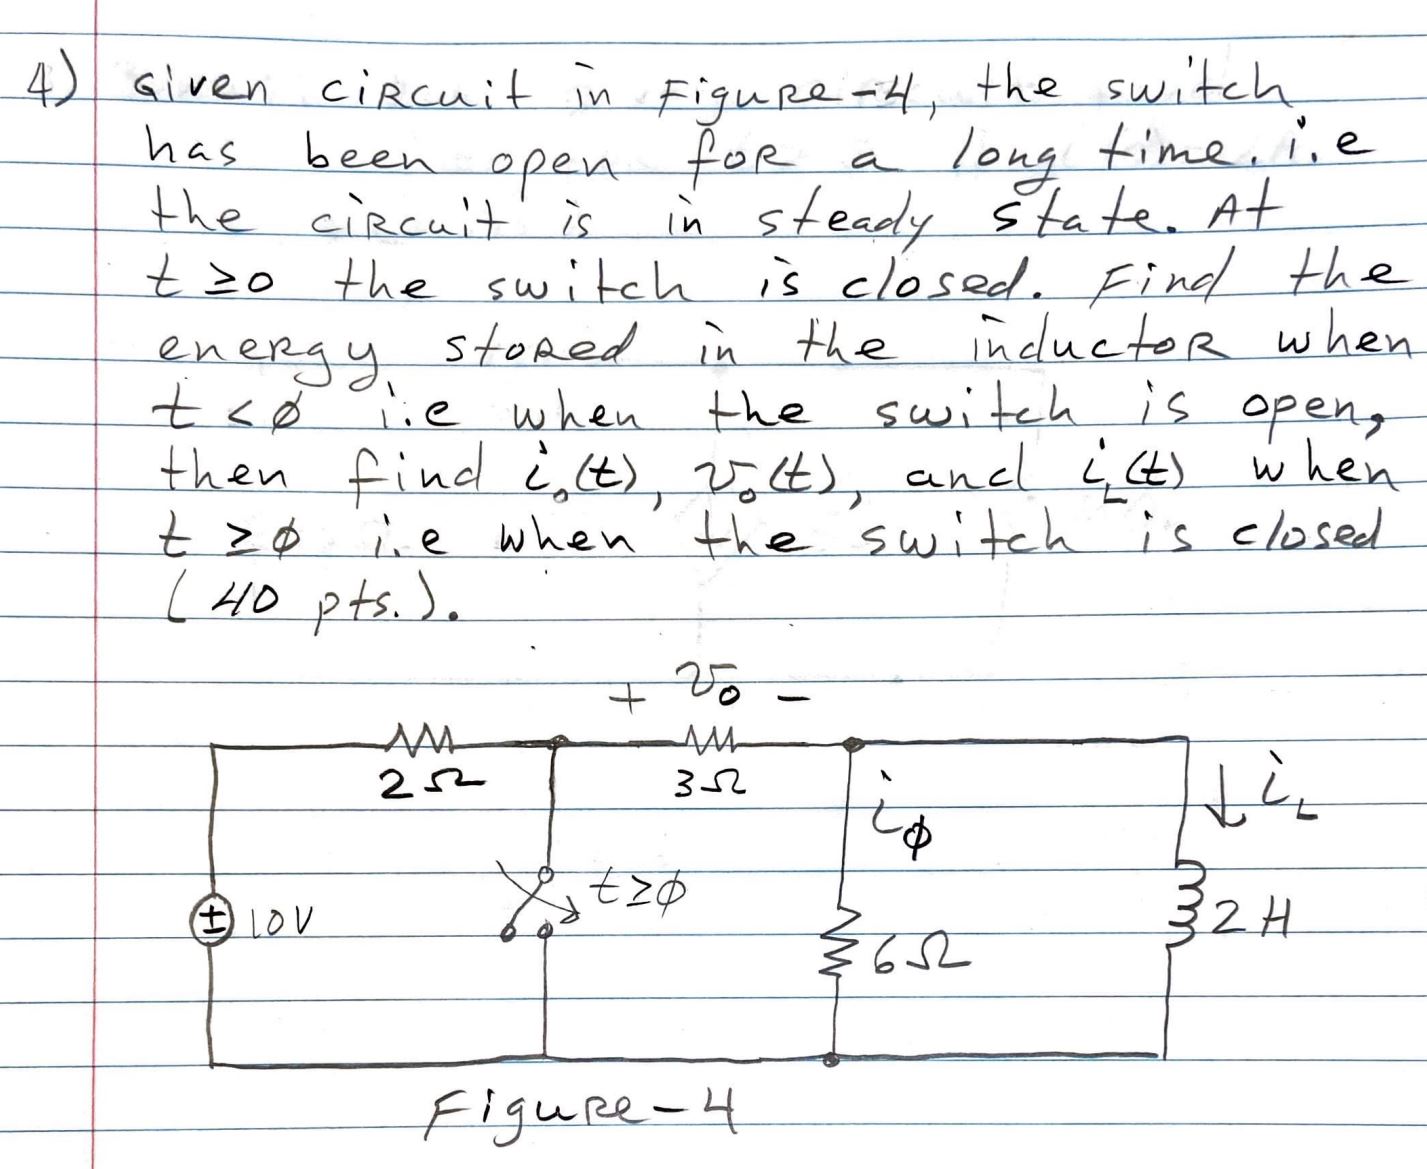 4) Given circuit in Figure-4, the switch
has been open for a long time. i.e
the circuit is in steady state. At
t ≥0 the switch is closed. Find the
energy stored in the inductor when
t <ø i.e when the switch is open,
then find i₀(t), v₀(t), and i_L(t) when
t ≥ø i.e when the switch is closed
(40 pts.).
+ v₀ -
2Ω 3Ω
i_ø ↓ i_L
t≥ø
± 10V 6Ω 2H
Figure-4